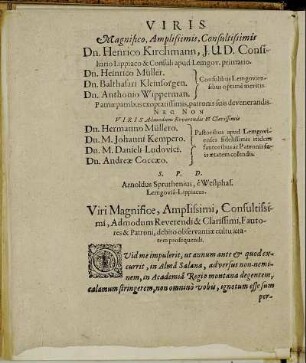 VIRIS
Magnifico, Amplissimis, Consultissimis
Dn. Henrico Kirchmann, J.U.D. Consi-
liario Lippiaco & Consuli apud Lemgov. primario.
Dn. Heinrico Müller.
Dn. Balthasari Kleinsorgen.
Dn. Anthonio Wipperman.
Consulibus Lemgovien-
sibus optime meritis.
Patriæ patribus exoptatissimis, patronis suis devenerandis.
NEC NON
VIRIS Admodum Reverendis & Clarissimis
Dn. Hermanno Müllero,
Dn. M. Johanni Kempero.
Dn. M. Danieli Ludovici.
Dn. Andreæ Coccæo.
Pastoribus apud Lemgovi-
enses fidelissimis itidem
fautoribus ac Patronis su-
is ætatem colendis.
S. P. D.
Arnoldus Spruthenius, è Westphal.
Lemgoviâ-Lippiacus.
Viri Magnifice, Amplissimi, Consultissi-
mi, Admodum Reverendi & Clarissimi, Fauto-
res & Patroni, debito observantiæ cultu æta-
tem prosequendi.
QUid me impulerit, ut annum ante & quod ex-
currit, in Almâ Salanâ, adversus non-nemi-
nem, in Academiâ Regio montana degentem,
calamum stringerem, non omninò vobis, ignotum esse sum
per-